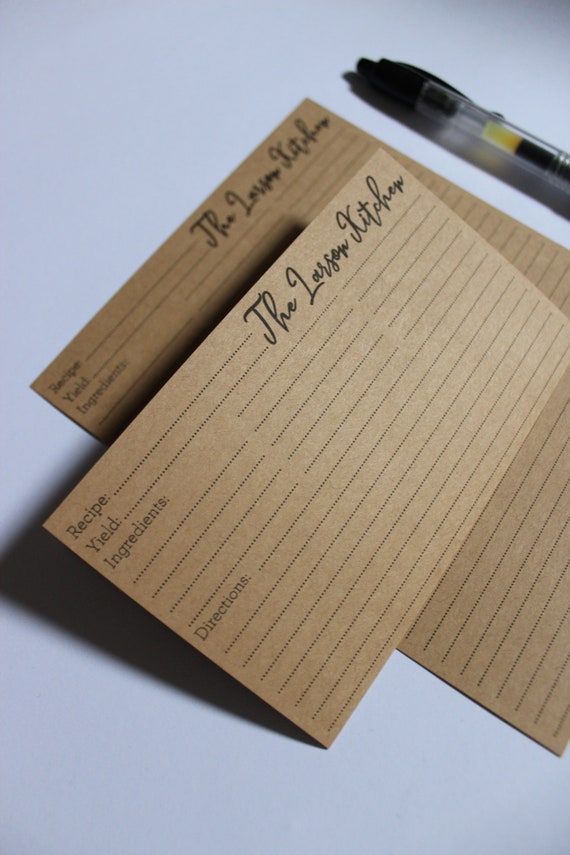 The Larson Kitchen
Recipe:
Yield:
Ingredients:
The Larson Kitchen
Recipe:
Yield:
Ingredients:
Directions: